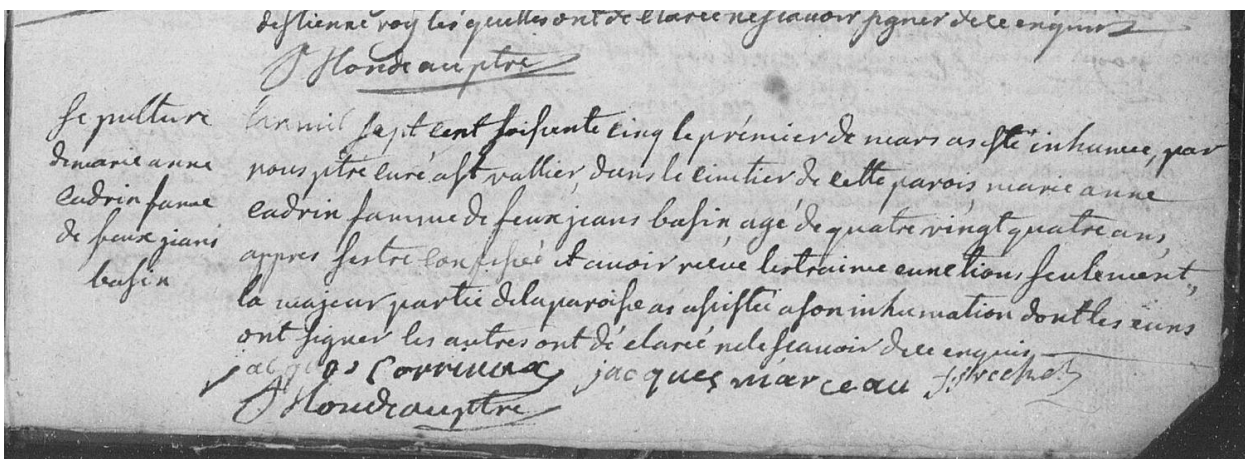 destienne roy lesquelles ont declarée ne scavoir signer de ce enquis
Hondeau ptre
Sepulture
de marie anne
cadrin fame
de feux jeans
basin
Lan mil sept cent soisente cinq le prémier de mars as esté inhumée, par
nous ptre curé a st vallier, dans le cimtier de cette parois, marie anne
cadrin famme de feux jeans basin, agé de quatre vingt quatre ans,
appres sestre confessée et avoir recue lextraime onctions seulement,
la majeur partie de la paroisse as asistée a son inhumation dont les euns
ont signer les autres ont dé clarée ne le scavoir de ce enquis
jacques Corriveax jacques marceau
Hondeau ptre